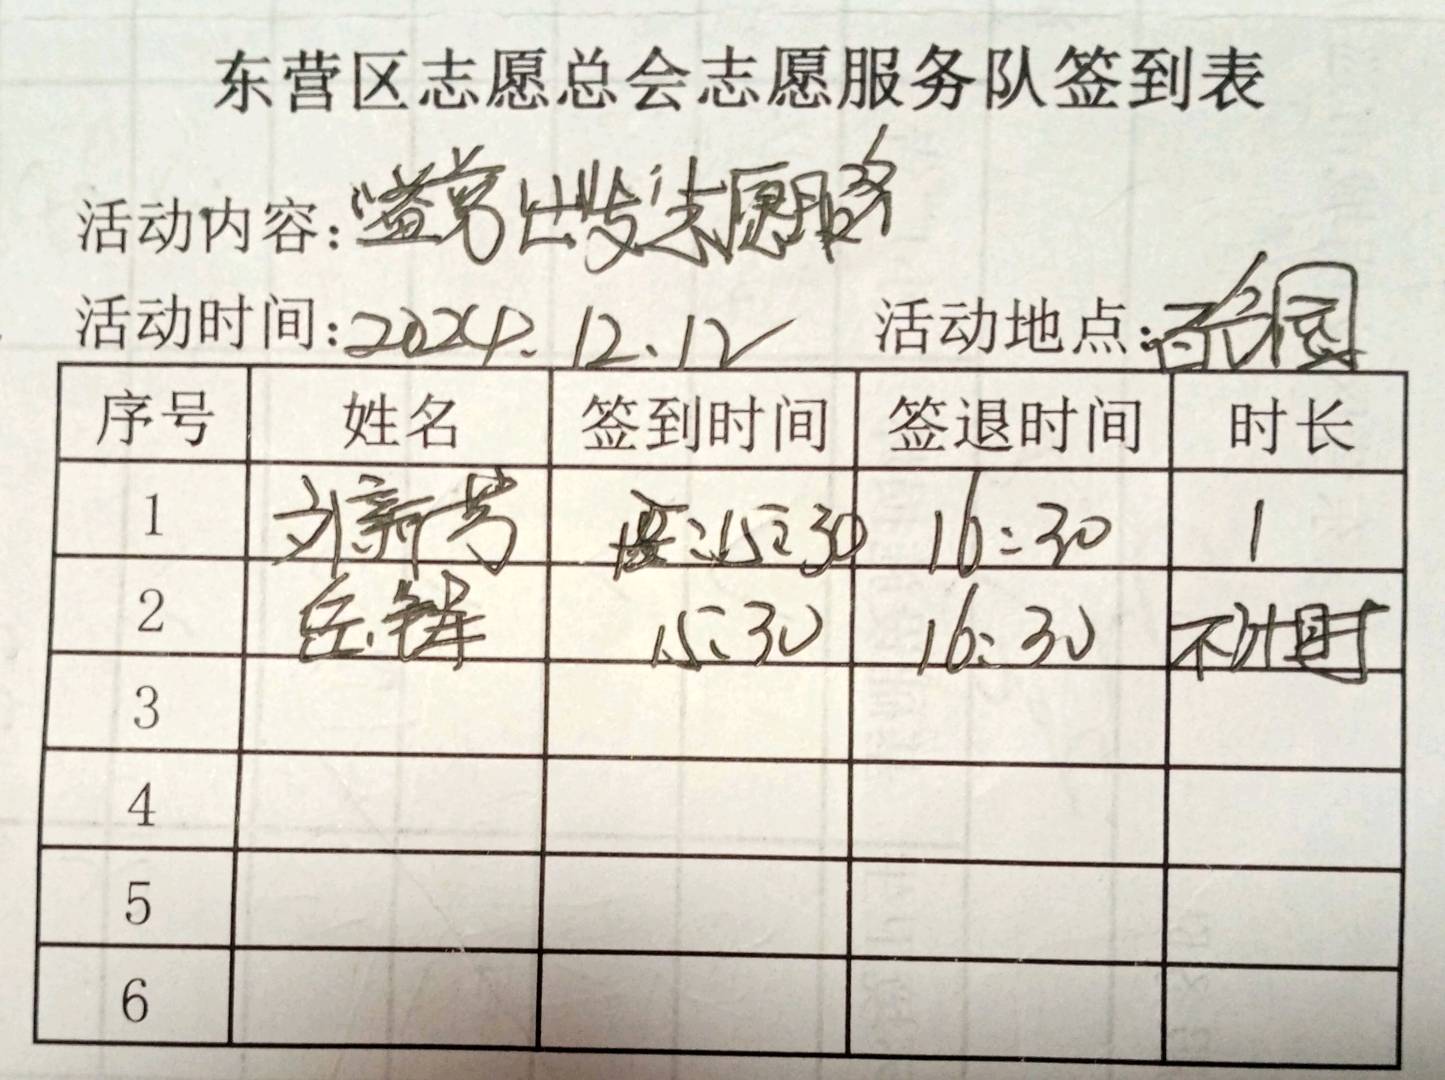 东营区志愿总会志愿服务队签到表
活动内容: 出发志愿服务
活动时间: 2024.12.12 活动地点:
序号 姓名 签到时间 签退时间 时长
1 刘新芳 15:30 16:30 1
2 岳锋 15:30 16:30 不计时
3
4
5
6